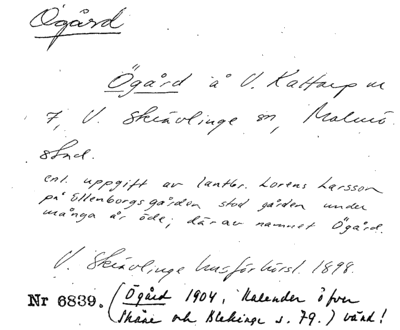 Ögård
Ögård å V. Kattarp nr
7, V. Skrävlinge sn, Malmö
stad.
enl. uppgift av lantbr. Lorens Larsson
på Ellenborgsgården stod gården under
många år öde; därav namnet Ögård.
V. Skrävlinge husförhörsl. 1898.
Nr 6839. (Ögård 1904, Kalender öfver
Skåne och Blekinge s. 79.) vänd!